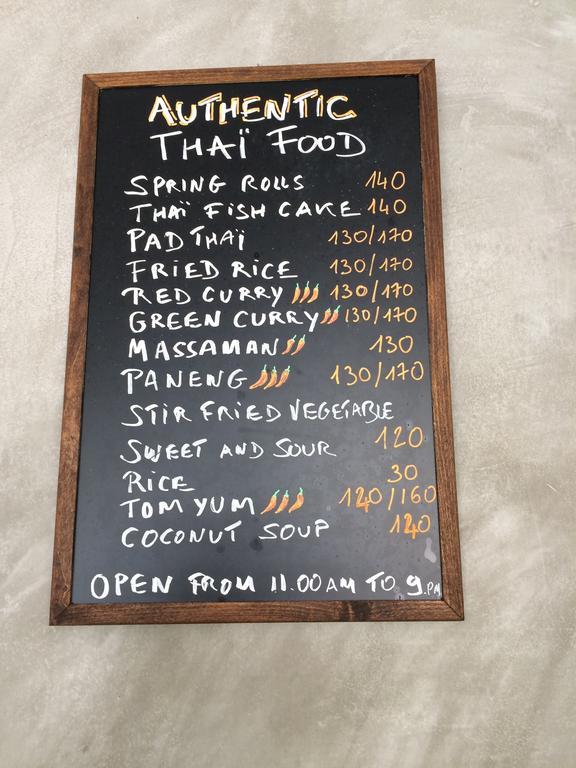 AUTHENTIC
THAÏ FOOD
SPRING ROLLS 140
THAÏ FISH CAKE 140
PAD THAÏ 130/170
FRIED RICE 130/170
RED CURRY 130/170
GREEN CURRY 130/170
MASSAMAN 130
PANENG 130/170
STIR FRIED VEGETABLE
120
SWEET AND SOUR
RICE 30
TOM YUM 120/160
COCONUT SOUP 120
OPEN FROM 11.00 AM TO 9.PM